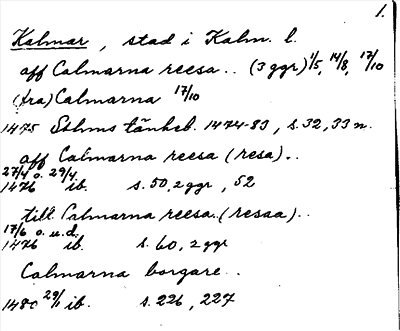 1.
Kalmar, stad i Kalm. l.
aff Calmarna reesa.. (3 ggr) 1/5, 14/8, 17/10
(fra) Calmarna 17/10
1475 Sthms tänkeb. 1474-83, s. 32, 33 n.
aff Calmarna reesa (resa)..
27/4 o. 29/4
1476 ib. s. 50, 2 ggr, 52
till Calmarna reesa (resaa)..
17/6 o. u.d.
1476 ib. s. 60, 2 ggr
Calmarna borgare..
1480 29/1 ib. s. 226, 227